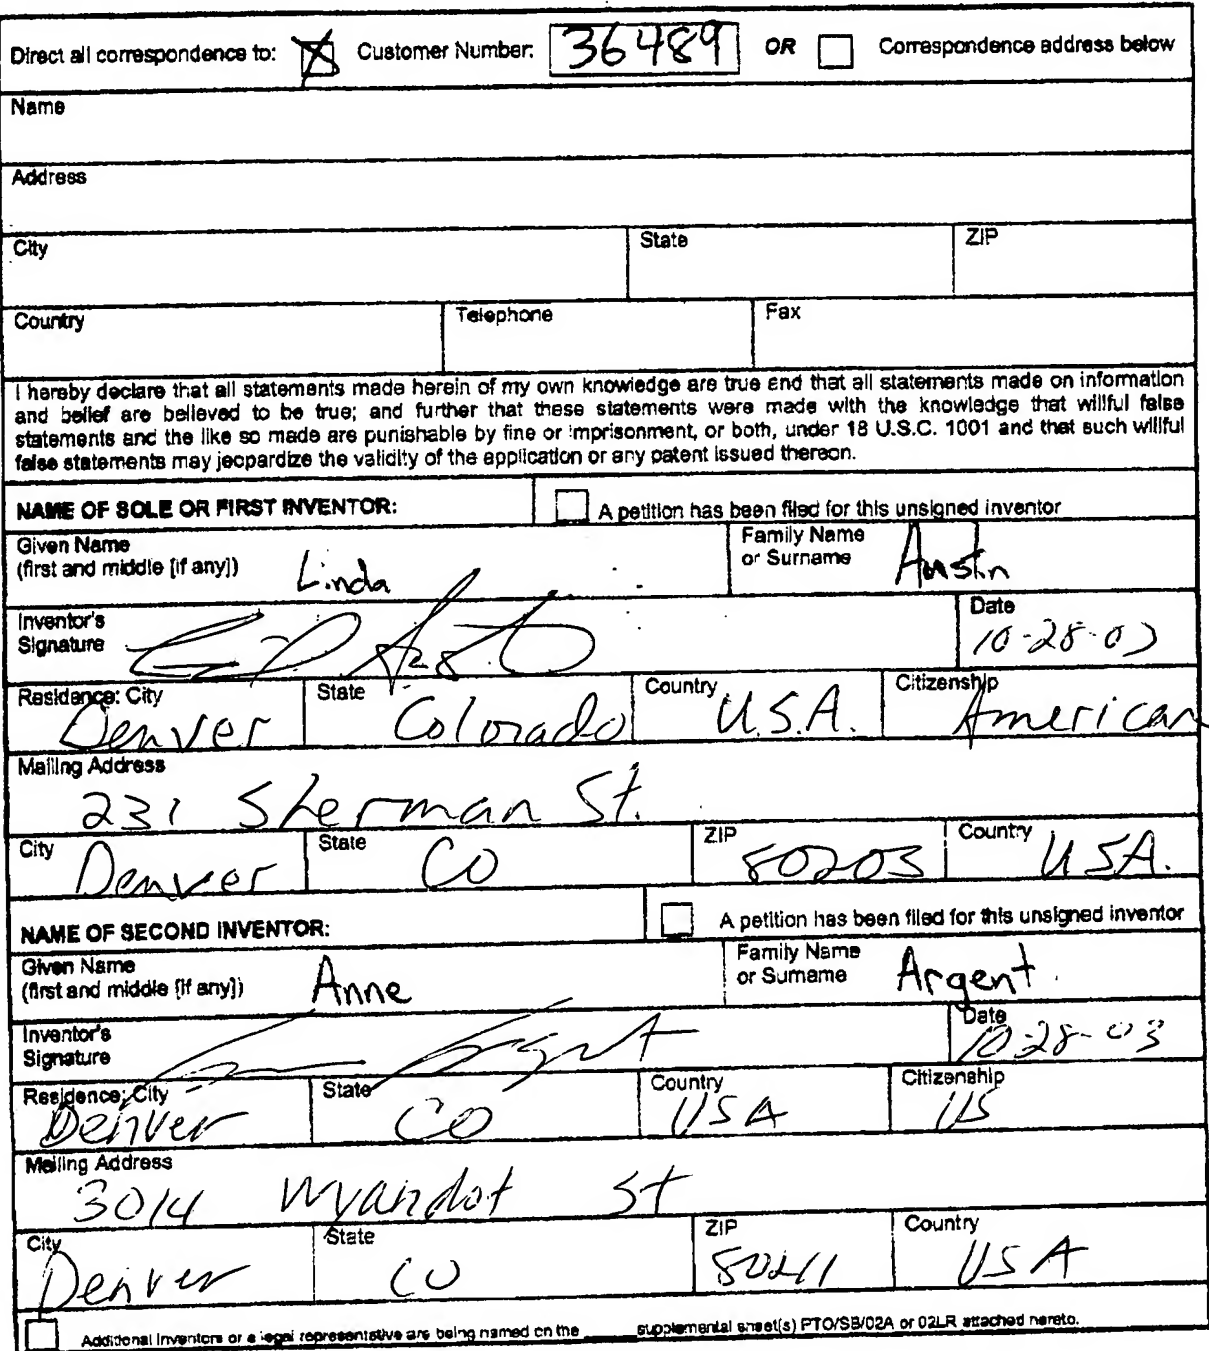 Direct all correspondence to: Customer Number: 36489 OR Correspondence address below
Name
Address
City State ZIP
Country Telephone Fax
I hereby declare that all statements made herein of my own knowledge are true and that all statements made on information
and belief are believed to be true; and further that these statements were made with the knowledge that willful false
statements and the like so made are punishable by fine or imprisonment, or both, under 18 U.S.C. 1001 and that such willful
false statements may jeopardize the validity of the application or any patent issued thereon.
NAME OF SOLE OR FIRST INVENTOR: A petition has been filed for this unsigned inventor
Given Name Family Name
(first and middle [if any]) Linda or Surname Austin
Inventor's Date
Signature 10-28-03
Residence: City State Country Citizenship
Denver Colorado U.S.A. American
Mailing Address
231 Sherman St.
City State ZIP Country
Denver CO 80203 USA.
NAME OF SECOND INVENTOR: A petition has been filed for this unsigned inventor
Given Name Family Name
(first and middle [if any]) Anne or Surname Argent
Inventor's Date
Signature 10-28-03
Residence: City State Country Citizenship
Denver CO USA US
Mailing Address
3014 Wyandot St
City State ZIP Country
Denver CO 80211 USA
Additional inventors or a legal representative are being named on the supplemental sheet(s) PTO/SB/02A or 02LR attached hereto.